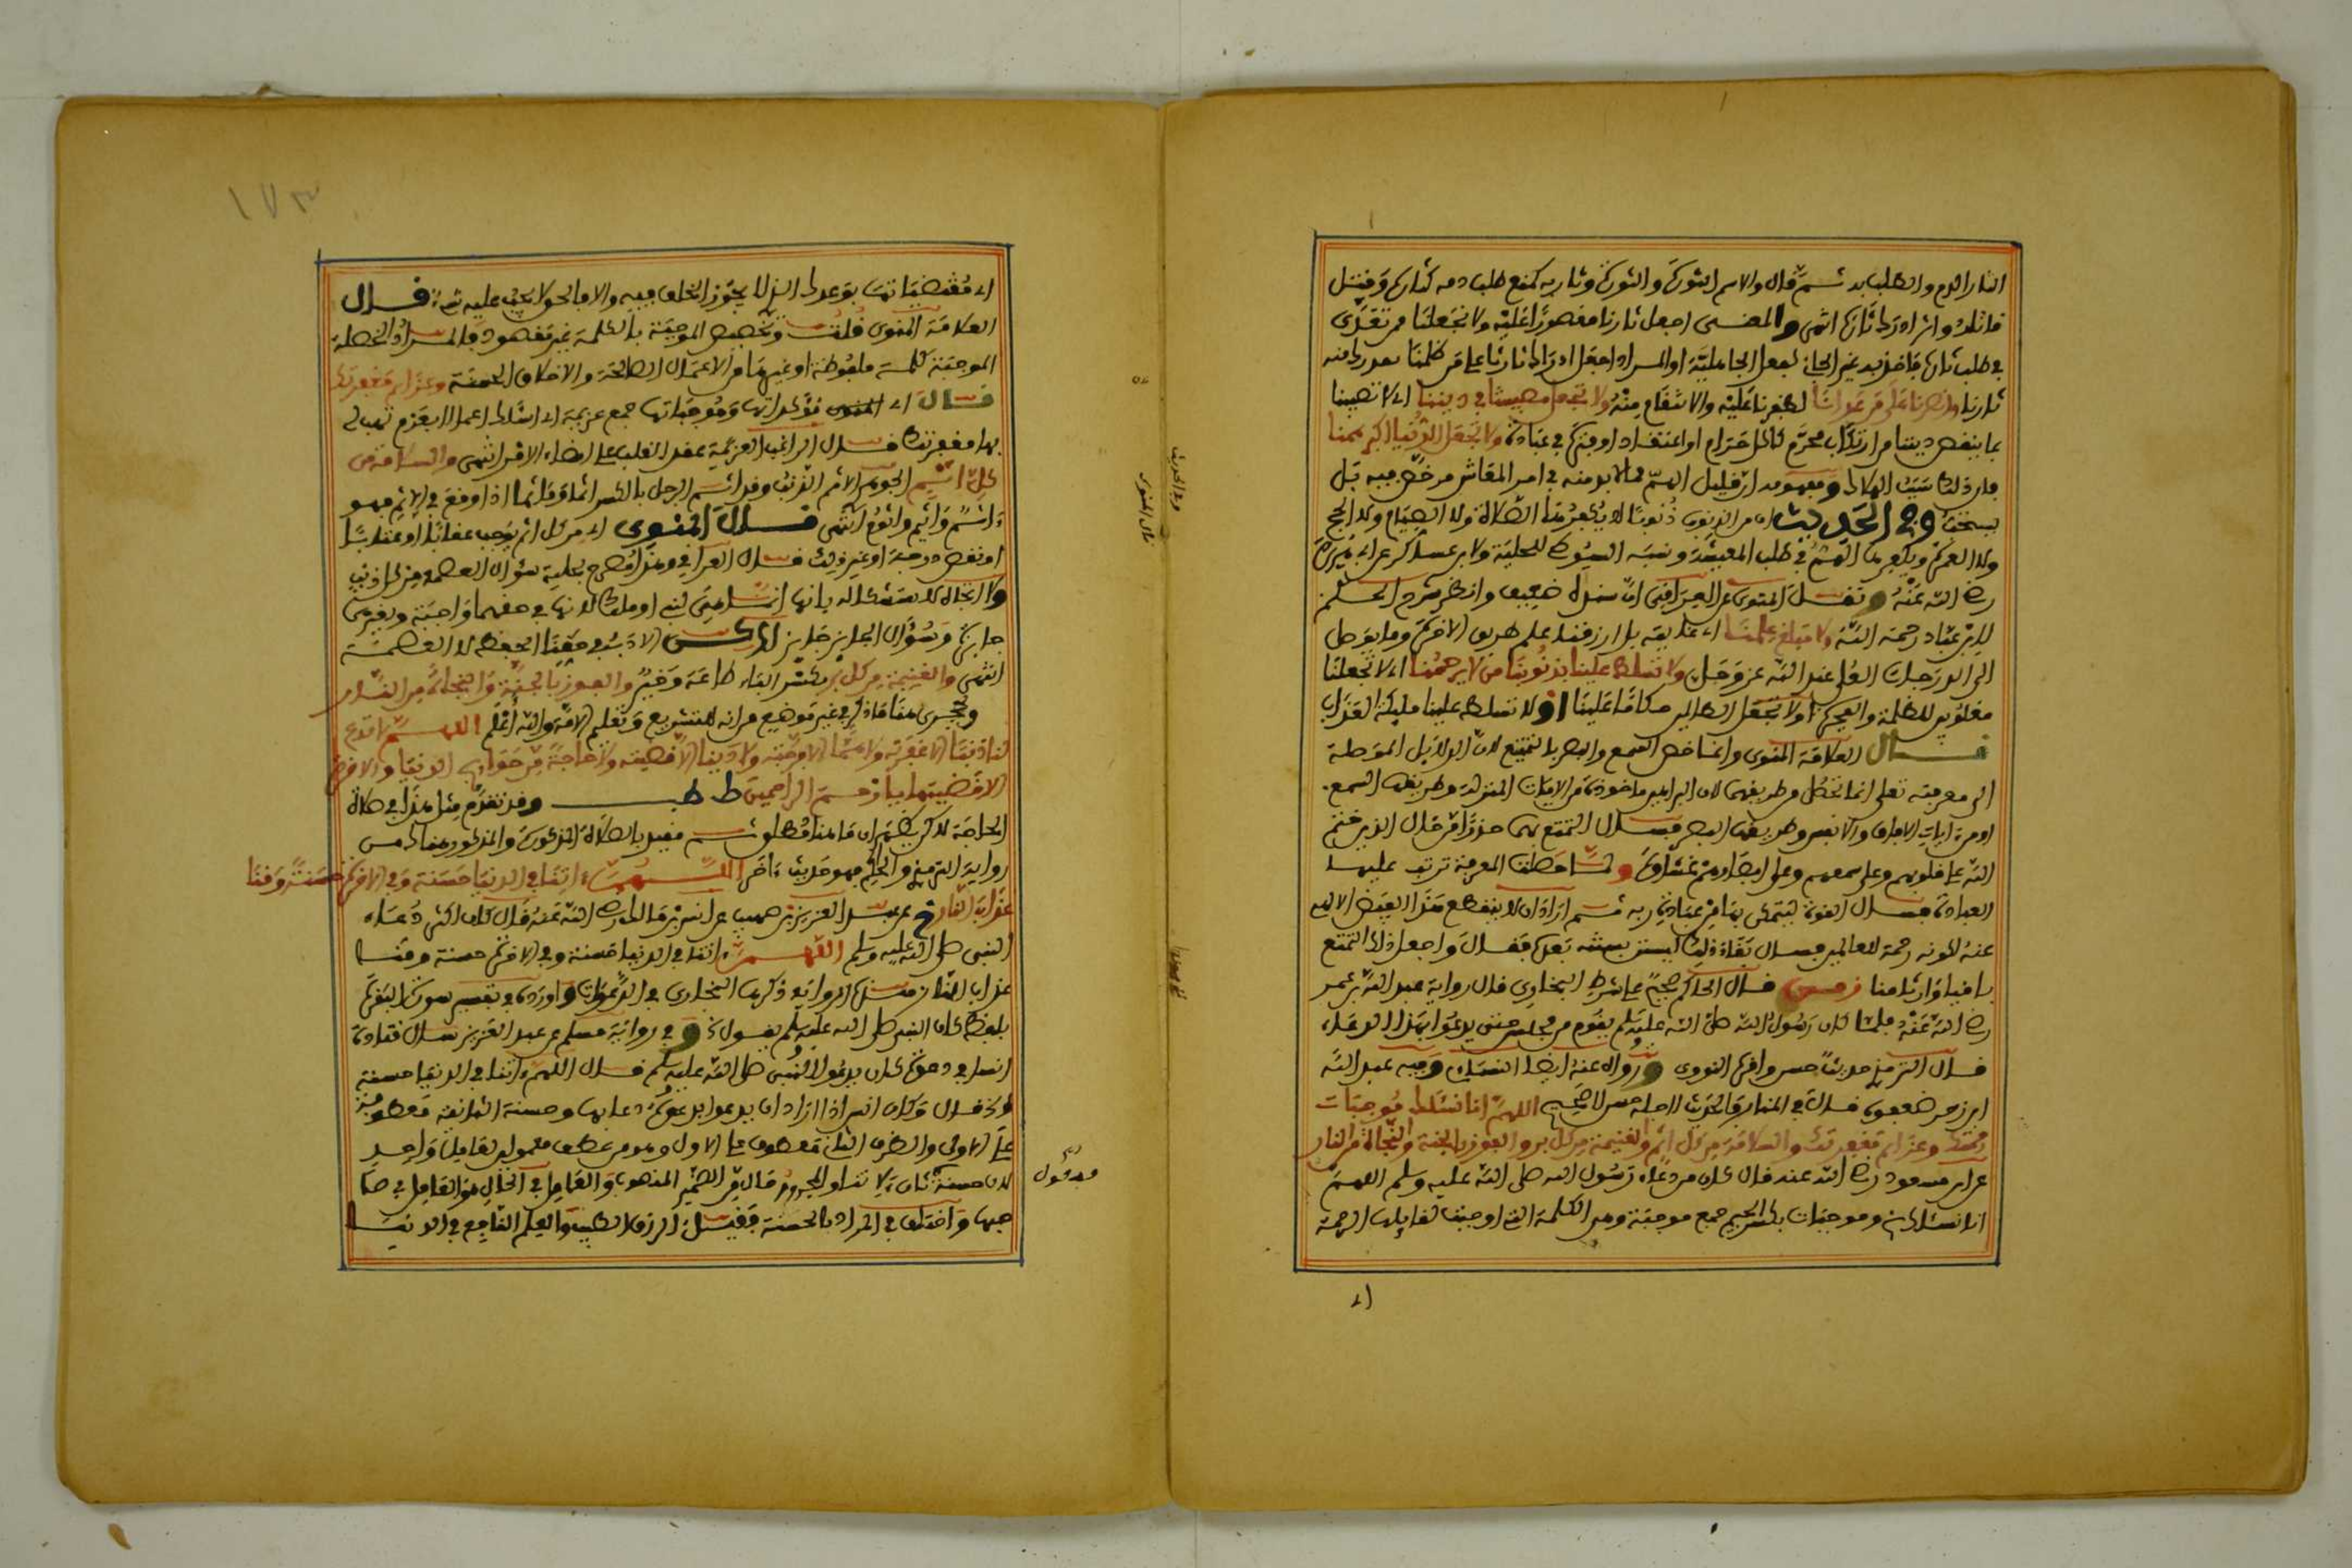 الثار الدم والطلب به ثم قال والاسم الثورة والثورة وثار به كمنع طلب دمه كثاره وقتل
قاتله واثار ادرك ثاره انتهى والمعنى اجعل ثارنا مقصورا عليه ولا تجعلنا ممن تعدى
في طلب ثاره فاخذ به غير الجاني كفعل الجاهلية او المراد اجعل ادراك ثارنا على من ظلمنا فندرك منه
ثارنا وانصرنا على من عادانا اظفرنا عليه والانتقام منه ولا تجعل مصيبتنا في ديننا اي لا تصبنا
بما ينقص ديننا من ارتكاب محرم كاكل حرام او اعتقاد او فترة في عبادة ولا تجعل الدنيا اكبر همنا
فان ذلك سبب الهلاك ومفهومه ان قليل الهم مما لا بد منه في امر المعاش مرخص فيه بل
يستحب وفي الحديث ان من الذنوب ذنوبا لا يكفرها الصلاة ولا الصيام ولا الحج
ولا العمرة ويكفرها الهم في طلب المعيشة ونسبه السيوطي للحلية ولابن عساكر عن ابي هريرة
رضي الله عنه ونقل المنوي عن العراقي ان سنده ضعيف وانظر شرح الحكم
لابن عباد رحمه الله ولا مبلغ علمنا اي غايته بل ارزقنا علم طريق الاخرة وما يوصل
الى الدرجات العلى عند الله عز وجل ولا تسلط علينا بذنوبنا من لا يرحمنا اي لا تجعلنا
مغلوبين للظلمة والفجرة او لا تجعل الظالمين حكاما علينا او لا تسلط علينا ملائكة العذاب
قال العلامة المنوي وانما خص السمع والبصر بالتمتع لان الدلائل الموصلة
الى معرفته تعالى انما تحصل من طريقهما لان البراهين ماخوذة من الايات المنزلة وطريقها السمع
او من ايات الافاق والانفس وطريقها البصر فسال التمتع بهما حذرا من حال الذين ختم
الله على قلوبهم وعلى سمعهم وعلى ابصارهم غشاوة ولما حصلت المعرفة ترتب عليها
العبادة فسال القوة ليتمكن بها من عبادة ربه ثم اراد ان لا ينقطع هذا الفيض الالهي
عنه لكونه رحمة للعالمين فسال بقاء ذلك ليستن بسنته بعده فقال واجعل ذلك التمتع
باقيا وارثا منا ت س قال الحاكم صحيح على شرط البخاري قال رواية عبد الله بن عمر
رضي الله عنه قلما كان رسول الله صلى الله عليه وسلم يقوم من مجلس حتى يدعو بهذا الدعاء
قال الترمذي حديث حسن واقره النووي ورواه عنه ايضا النسائي وفيه عبد الله
ابن زحر ضعفوه قال في المنار فالحديث لاجله حسن لا صحيح اللهم انا نسئلك موجبات
رحمتك وعزائم مغفرتك والسلامة من كل اثم والغنيمة من كل بر والفوز بالجنة والنجاة من النار
عن ابن مسعود رضي الله عنه قال كان من دعاء رسول الله صلى الله عليه وسلم اللهم
انا نسئلك وموجبات بكسر الجيم جمع موجبة وهي الكلمة التي اوجبت لقايلها الرحمة
اي
١٧٣
اي مقتضياتها بوعدك الذي لا يجوز الخلف فيه والا فالحق لا يجب عليه شيء قال
العلامة المنوي قلت وتخصيص الموجبة بالكلمة غير مقصود فالمراد الخصلة
الموجبة كلمة ملفوظة او غيرها من الاعمال الصالحة والاخلاق الحسنة وعزائم مغفرتك
قال اي المنوي مؤكداتها وموجباتها جمع عزيمة اي اسئلك اعمالا بعزم تهب لي
بها مغفرتك قال الراغب العزيمة عقد القلب على امضاء الامر انتهى والسلامة من
كل اثم الجوهري الاثم الذنب وقد اثم الرجل بالكسر اثما وماثما اذا وقع في الاثم فهو
ءاثم واثيم واثوم انتهى قال المنوي اي من كل اثم يوجب عقابا او عتابا
او نقص درجة او غير ذلك قال العراقي وهذا مصرح بحلية سؤال العصمة من كل ذنب
ولا اتجاه لاستشكاله بانها انما هي لنبي او ملك لانها في حقهما واجبة وفي غيرهما
جائزة وسؤال الجائز جائز لكن الادب في حقنا الحفظ لا العصمة
انتهى والغنيمة من كل بر بكسر الباء طاعة وخير والفوز بالجنة والنجاة من النار
ويجري هنا ما ذكر في غير موضع من انه للتشريع وتعليم الامة والله اعلم اللهم لا تدع
لنا ذنبا الا غفرته ولا هما الا فرجته ولا دينا الا قضيته ولا حاجة من حوائج الدنيا والاخرة
الا قضيتها يا ارحم الراحمين ط طب وقد تقدم مثل هذا في صلاة
الحاجة لكن يظهر ان ما هنا مطلوب ثم مقيد بالصلاة المذكورة والمذكور هناك من
رواية الترمذي والحاكم فهو حديث ءاخر اللهم ءاتنا في الدنيا حسنة وفي الاخرة حسنة وقنا
عذاب النار خ عن عبد العزيز بن صهيب عن انس بن مالك رضي الله عنه قال كان اكثر دعاء
النبي صلى الله عليه وسلم اللهم ءاتنا في الدنيا حسنة وفي الاخرة حسنة وقنا
عذاب النار هذه الرواية ذكرها البخاري في الدعوات واوردها في تفسير سورة البقرة
بلفظ كان النبي صلى الله عليه وسلم يقول وفي رواية مسلم عن عبد العزيز سال قتادة
انسا اي دعوة كان يدعو بها النبي صلى الله عليه وسلم قال اللهم ءاتنا في الدنيا حسنة
الخ قال وكان انس اذا اراد ان يدعو بدعوة دعا بها وحسنة الثانية معطوفة
على الاولى والظرف الثاني معطوف على الاول وهو من عطف معمولين لعامل واحد
لان حسنة ثان لاتنا والمجرور حال من الضمير المنصوب والعامل في الحال هو العامل في صا
حبها واختلف في المراد بالحسنة فقيل الرزق الطيب والعلم النافع في الدنيا
وفي الحديث
قال المنوي